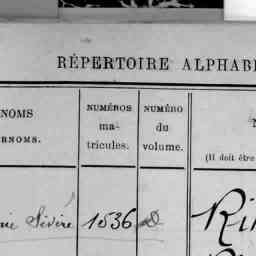 RÉPERTOIRE ALPHAB
NOMS
RNOMS.
NUMÉROS
ma-
tricules.
NUMÉRO
du
volume.
(Il doit être
Sévère 1536
Ri